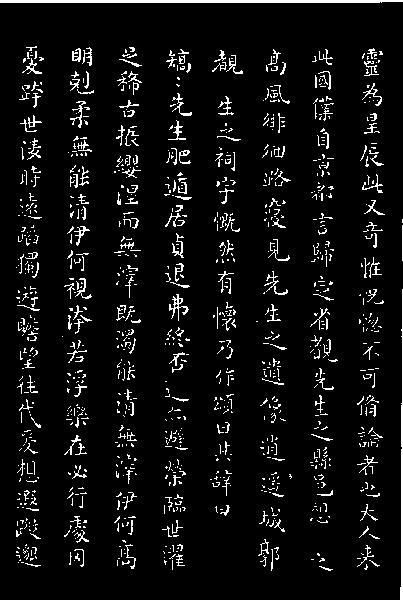 靈為星辰此又奇恠怳惚不可備論者也大人來
此國僕自京都言歸定省覩先生之縣邑想之
高風徘徊路寢見先生之遺像逍遙城郭
覩生之祠宇慨然有懷乃作頌曰其辭曰
矯〻先生肥遁居貞退弗終否進亦避榮臨世濯
足稀古振纓涅而無滓既濁能清無滓伊何高
明剋柔無能清伊何視汙若浮樂在必行處罔
憂跨世淩時遠蹈獨遊瞻望往代爰想遐蹤邈